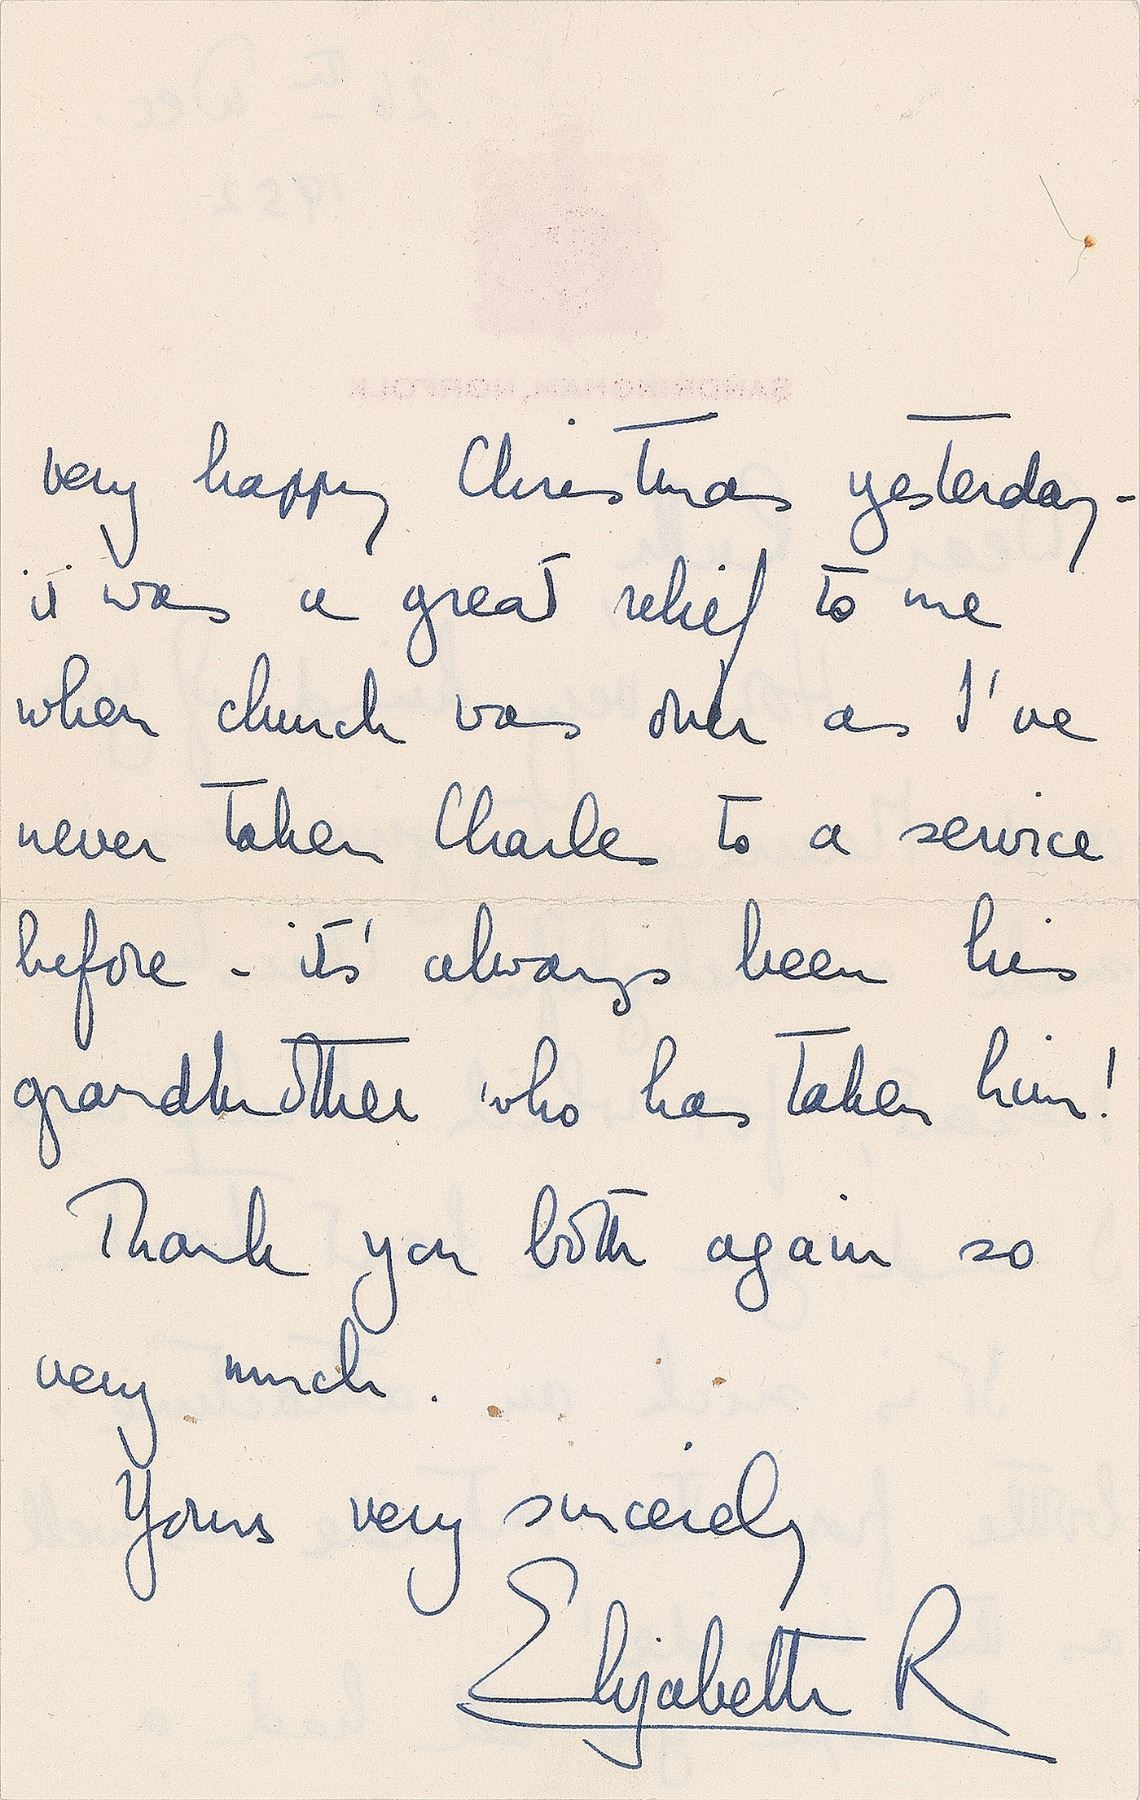 26th Dec.
1952.
SANDRINGHAM, NORFOLK
very happy Christmas yesterday -
it was a great relief to me
when church was over as I've
never taken Charles to a service
before - its' always been his
grandmother who has taken him!
Thank you both again so
very much.
Yours very sincerely
Elizabeth R